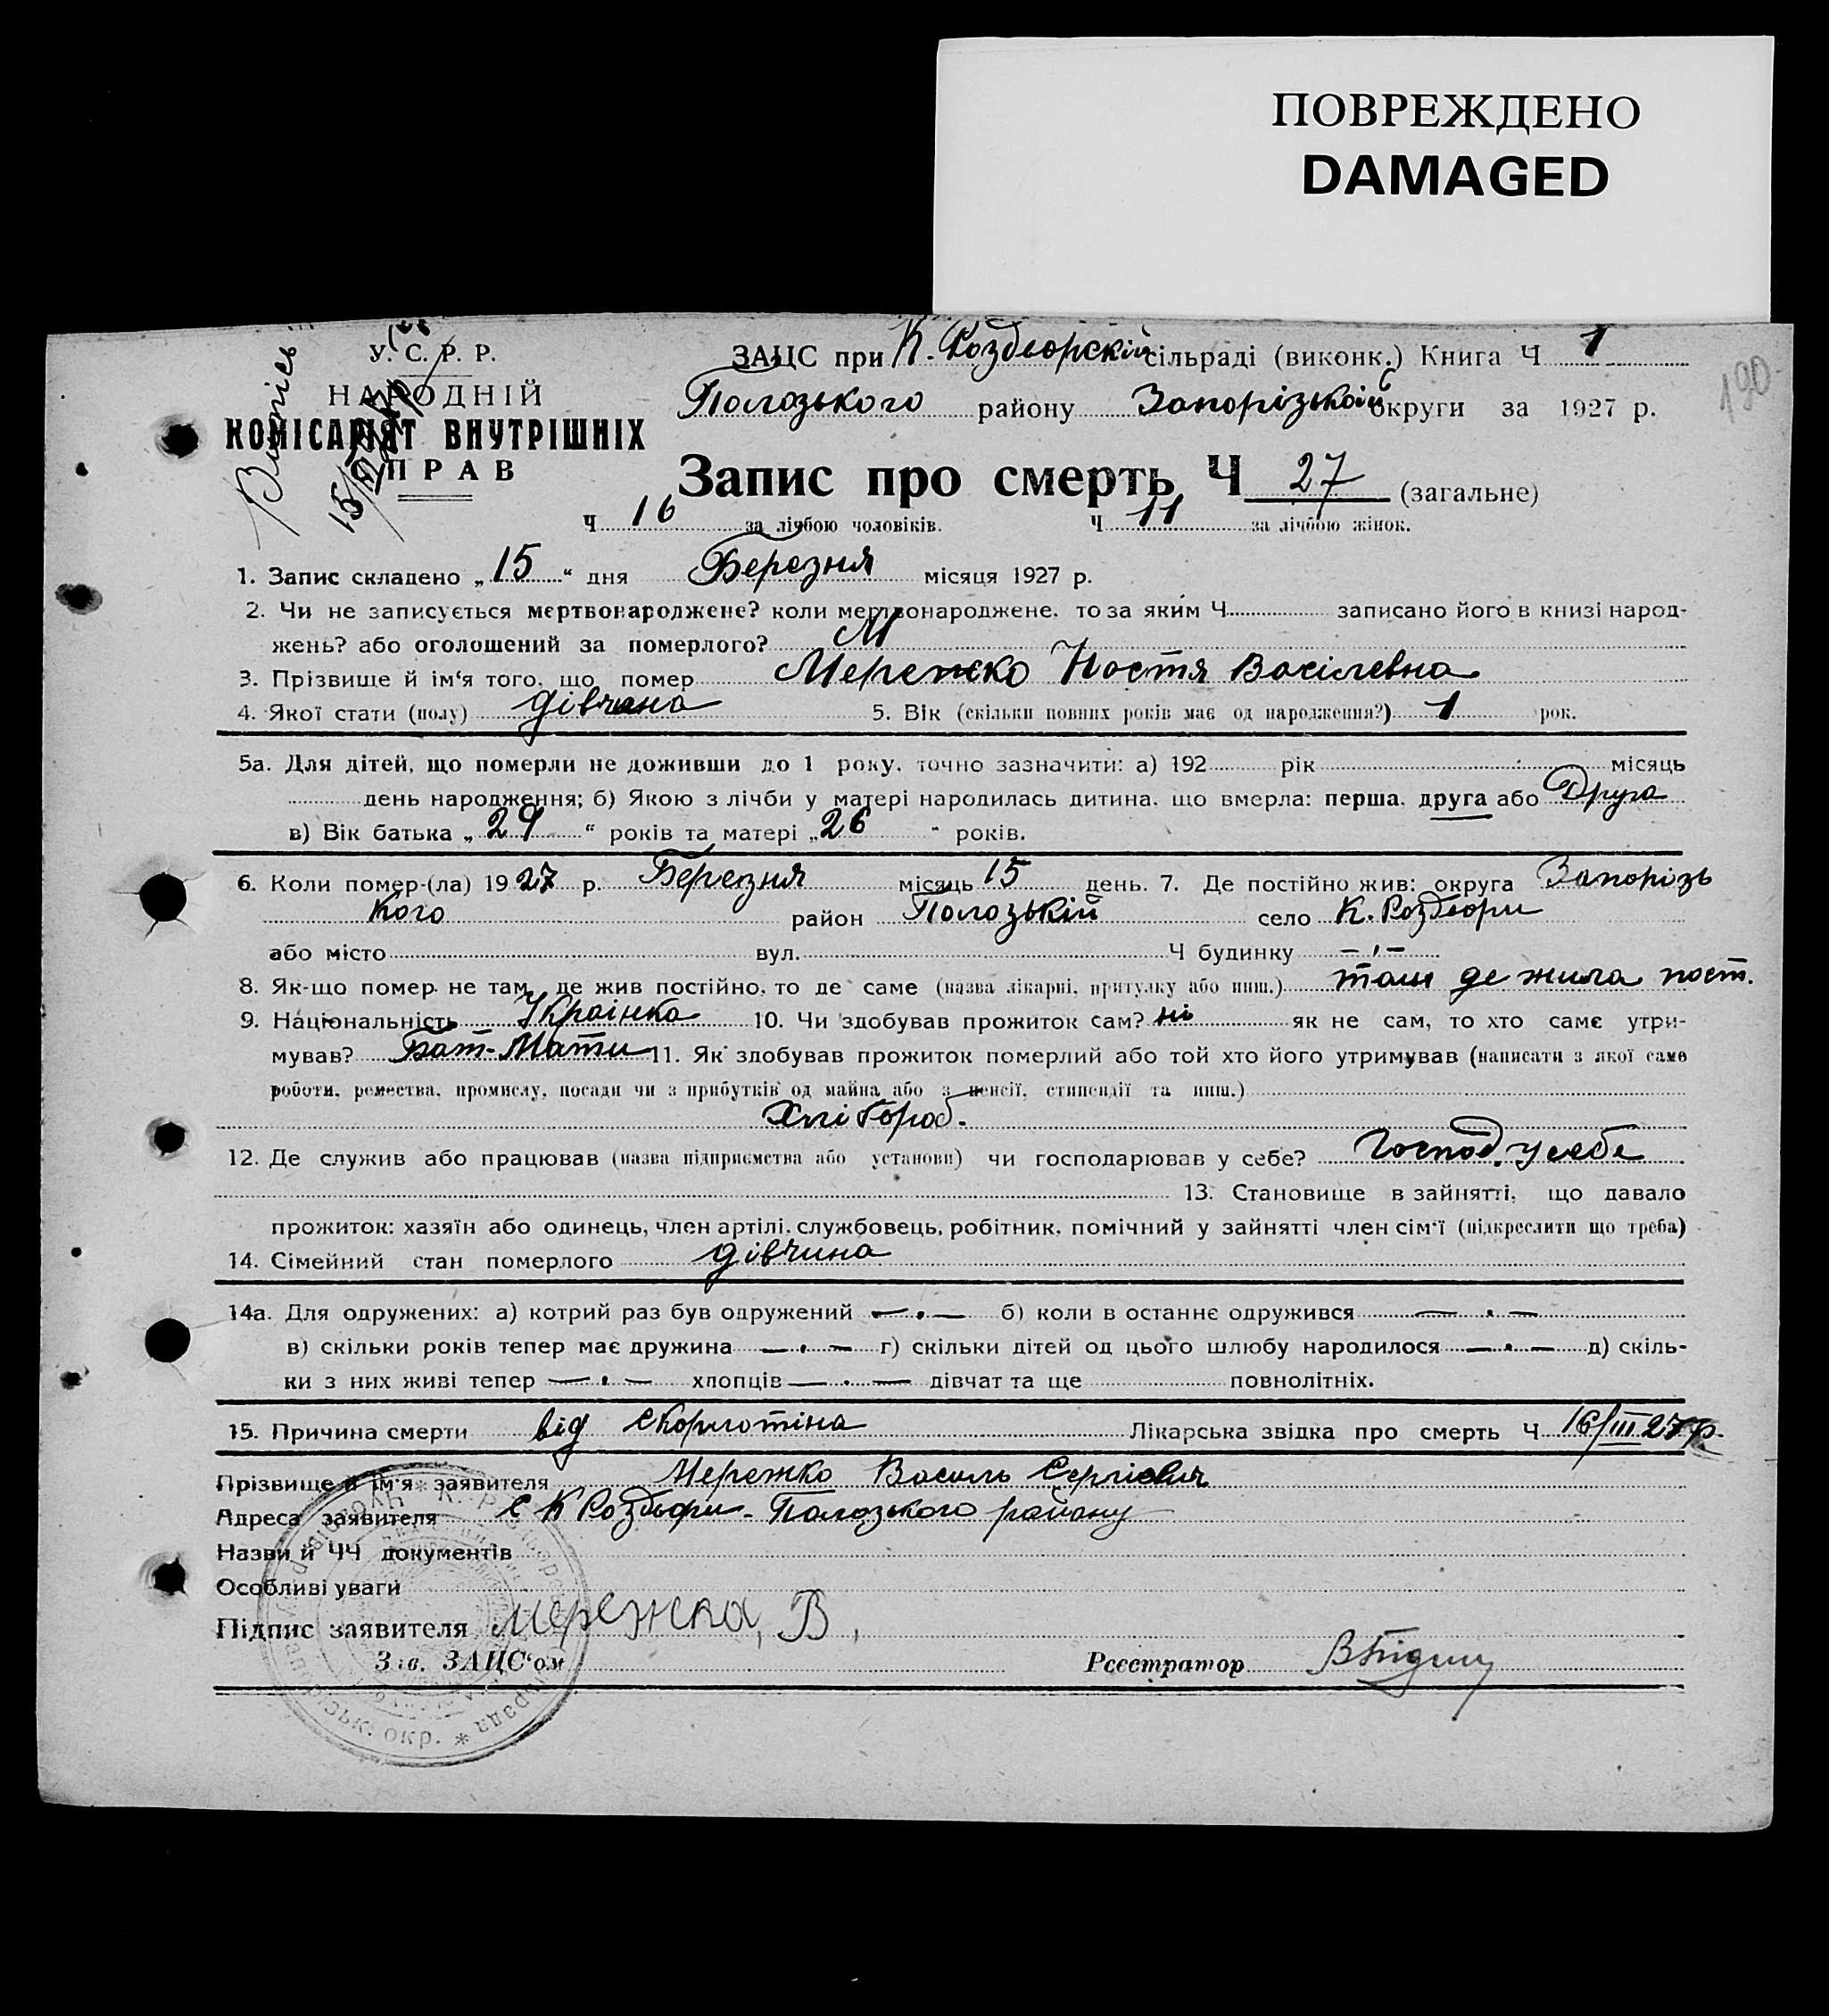 ПОВРЕЖДЕНО
DAMAGED
У. С. Р. Р.
НАРОДНІЙ
КОМІСАРІЯТ ВНУТРІШНІХ
СПРАВ
Випис
190
ЗАЦС при К. Роздворскій сільраді (виконк.) Книга Ч 1
Пологзького району Запорізькой округи за 1927 р.
Запис про смерть Ч 27 (загальне)
Ч 16 за лічбою чоловіків. Ч 11 за лічбою жінок.
1. Запис складено „15“ дня Березня місяця 1927 р.
2. Чи не записується мертвонароджене? коли мертвонароджене, то за яким Ч записано його в книзі народ-
жень? або оголошений за померлого?
3. Прізвище й ім‘я того, що помер Мережко Настя Васілевна
4. Якої стати (полу) дівчена 5. Вік (скільки повних років має од народження?) 1 рок.
5а. Для дітей, що померли не доживши до 1 року, точно зазначити: а) 192 рік місяць
день народження; б) Якою з лічби у матері народилась дитина, що вмерла: перша, друга або Друга
в) Вік батька „29“ років та матері „26“ років.
6. Коли помер-(ла) 1927 р. Березня місяць 15 день. 7. Де постійно жив: округа Запорізь
кого район Пологзькій село К. Роздори
або місто вул. Ч будинку — , —
8. Як-що помер не там, де жив постійно, то де саме (назва лікарні, притулку або инш.) там де жила пост.
9. Національність Украінка 10. Чи здобував прожиток сам? ні як не сам, то хто саме утри-
мував? Бат-Мати 11. Як здобував прожиток померлий або той хто його утримував (написати з якої саме
роботи, ремества, промислу, посади чи з прибутків од майна або з пенсії, стипендії та инш.)
Хлібороб.
12. Де служив або працював (назва підприємства або установи) чи господарював у себе? Господ. у себе
13. Становище в зайнятті, що давало
прожиток: хазяїн або одинець, член артілі, службовець, робітник, помічний у зайнятті член сім‘ї (підкреслити що треба)
14. Сімейний стан померлого дівчина
14а. Для одружених: а) котрий раз був одружений — . — б) коли в останнє одружився — . —
в) скільки років тепер має дружина — . — г) скільки дітей од цього шлюбу народилося — . — д) скіль-
ки з них живі тепер — . — хлопців — . — дівчат та ще повнолітніх.
15. Причина смерти від скорлотіна Лікарська звідка про смерть Ч 16/III 27 р.
Прізвище й ім‘я заявителя Мережко Василь Сергієвич
Адреса заявителя с К Роздори - Пологзкого району
Назви й ЧЧ документів
Особливі уваги
Підпис заявителя Мережка, В,
Зав. ЗАЦС‘ом Реєстратор